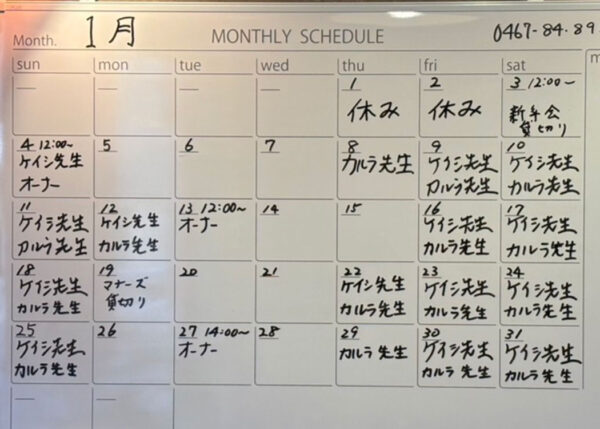 Month. 1月 MONTHLY SCHEDULE 0467-84-89
sun mon tue wed thu fri sat m
1 2 3 12:00~
休み 休み 新年会
貸切り
4 12:00~ 5 6 7 8 9 10
ケイシ先生 カルラ先生 ケイシ先生 ケイシ先生
オーナー カルラ先生 カルラ先生
11 12 13 12:00~ 14 15 16 17
ケイシ先生 ケイシ先生 オーナー ケイシ先生 ケイシ先生
カルラ先生 カルラ先生 カルラ先生 カルラ先生
18 19 20 21 22 23 24
ケイシ先生 マナーズ ケイシ先生 ケイシ先生 ケイシ先生
カルラ先生 貸切り カルラ先生 カルラ先生 カルラ先生
25 26 27 14:00~ 28 29 30 31
ケイシ先生 オーナー カルラ先生 ケイシ先生 ケイシ先生
カルラ先生 カルラ先生 カルラ先生